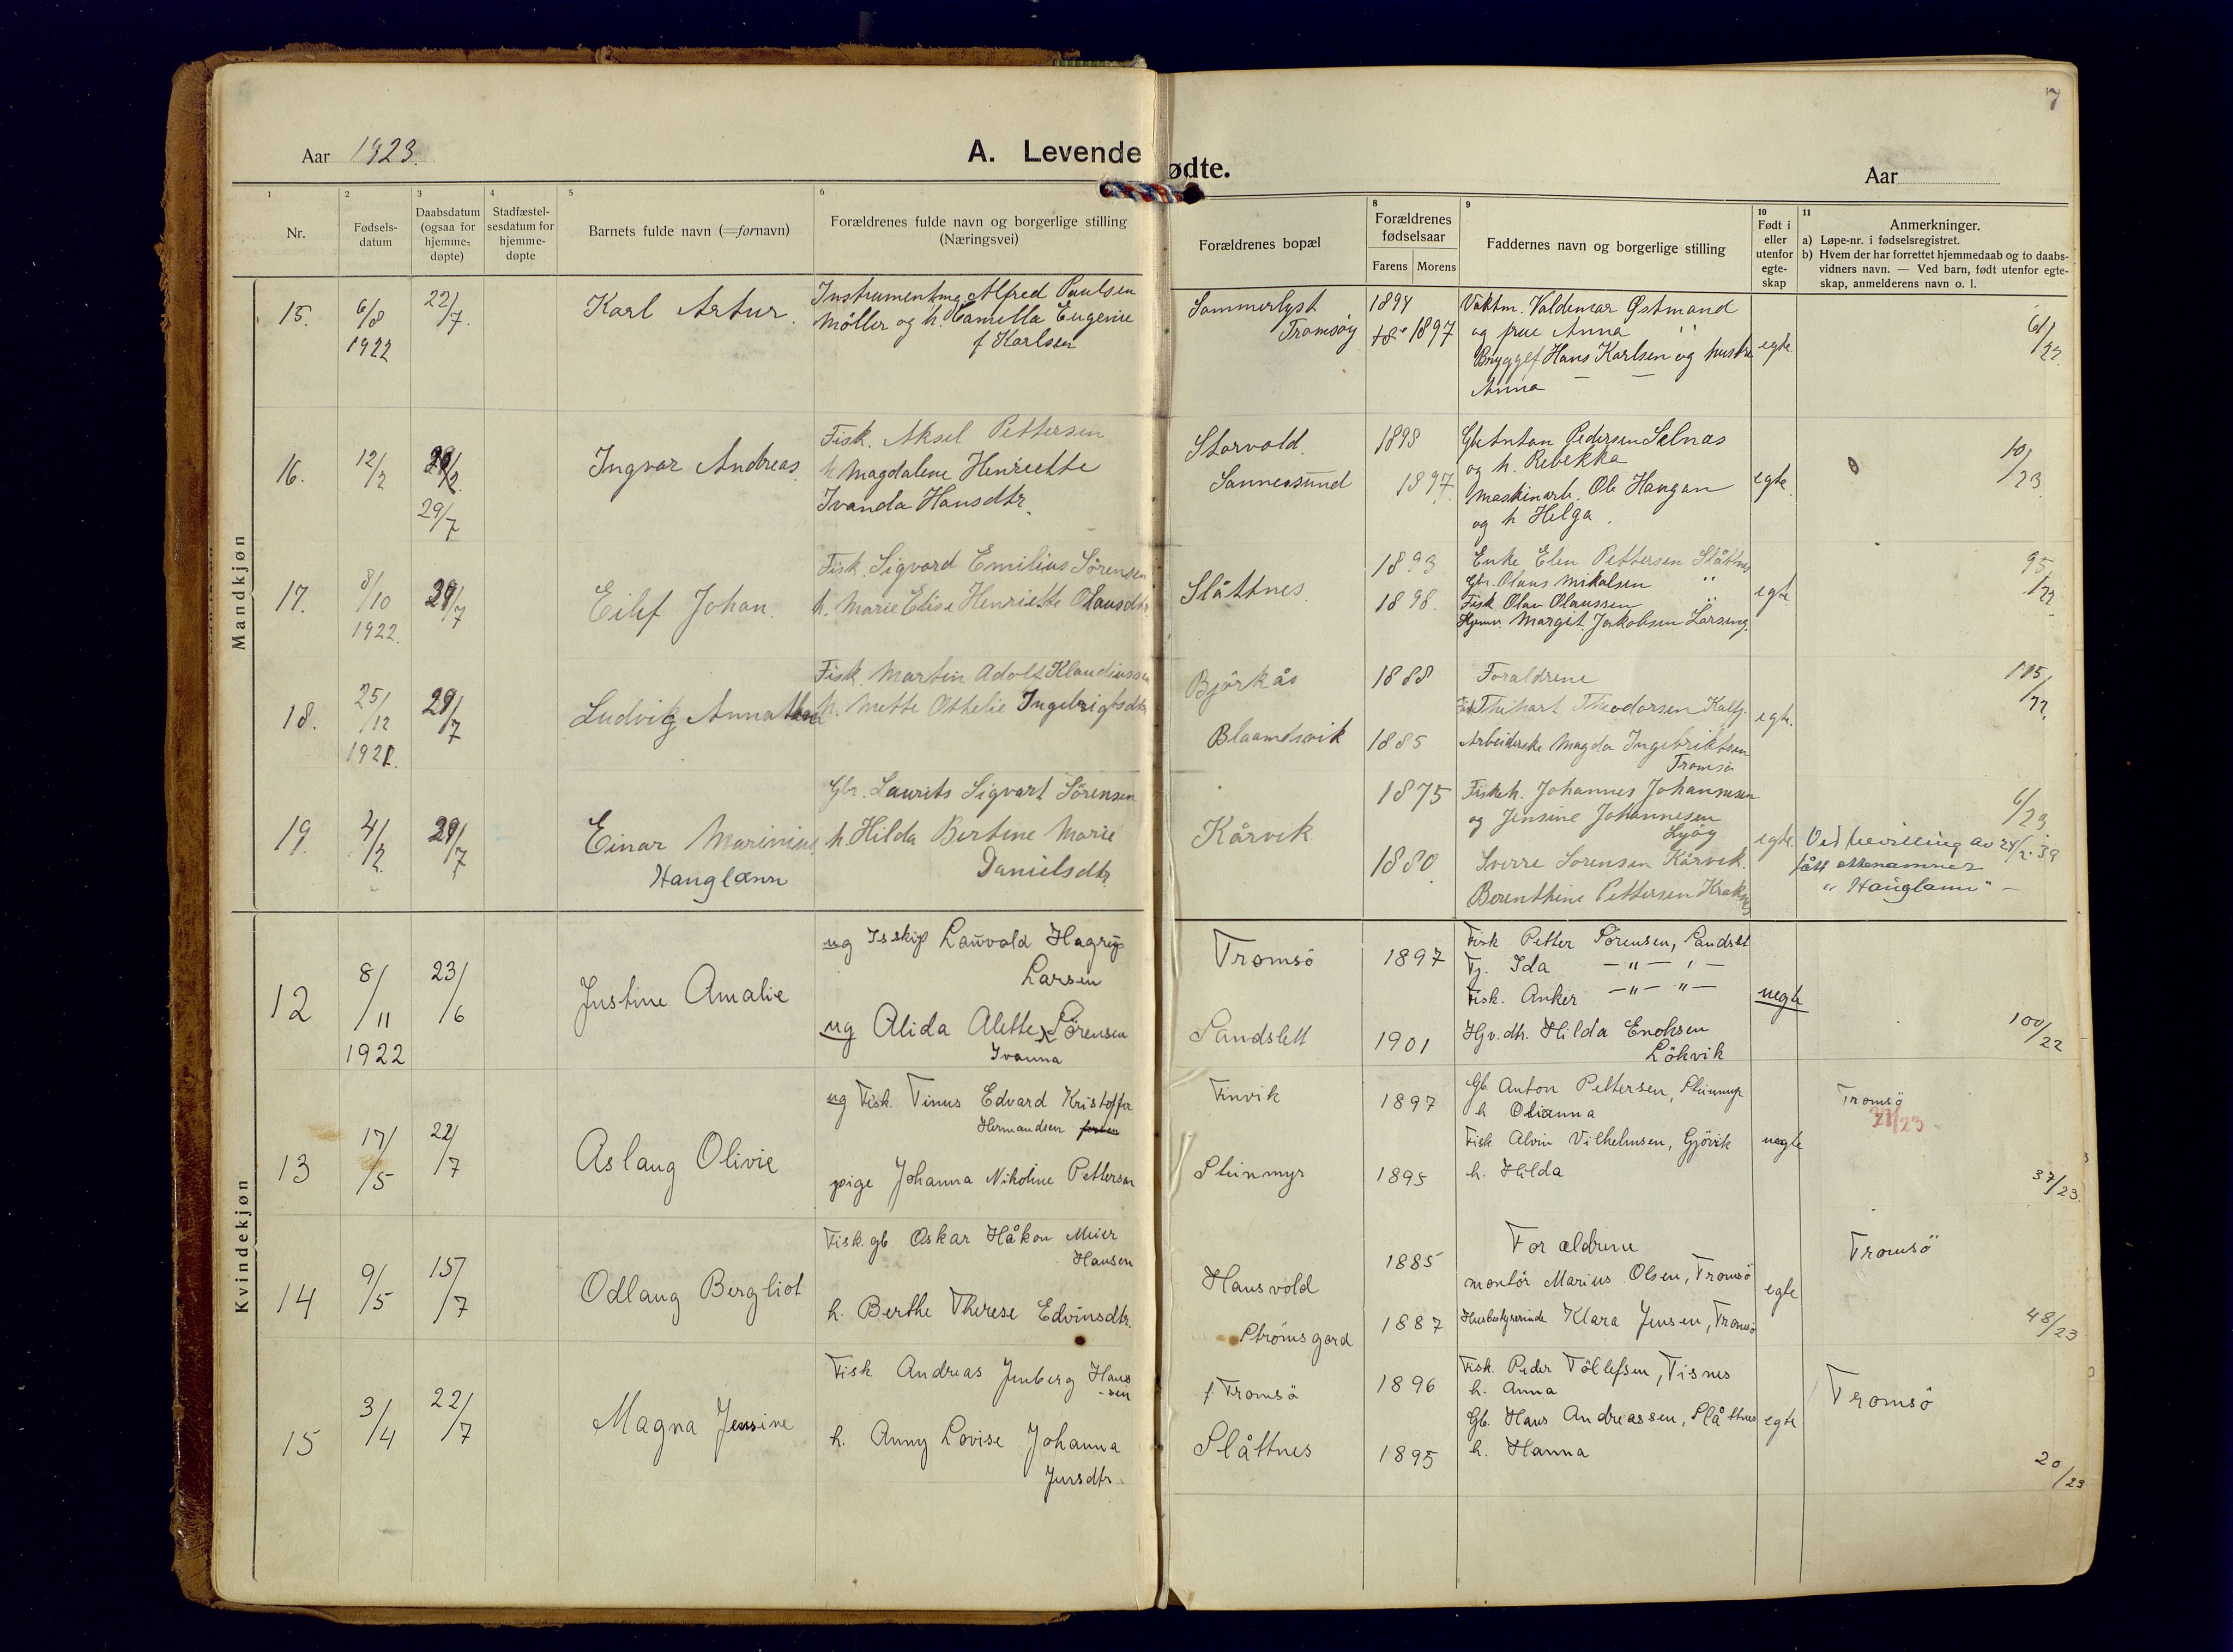 7
Aar 1923.
A. Levende
ødte.
Aar
1
2
3
4
5
6
8
9
10
11
Nr.
Fødsels-
datum
Daabsdatum
(ogsaa for
hjemme-
døpte)
Stadfæstel-
sesdatum for
hjemme-
døpte
Barnets fulde navn (=fornavn)
Forældrenes fulde navn og borgerlige stilling
(Næringsvei)
Forældrenes bopæl
Forældrenes
fødselsaar
Farens
Morens
Faddernes navn og borgerlige stilling
Født i
eller
utenfor
egte-
skap
Anmerkninger.
a) Løpe-nr. i fødselsregistret.
b) Hvem der har forrettet hjemmedaab og to daabs-
vidners navn. — Ved barn, født utenfor egte-
skap, anmelderens navn o. l.
Mandkjøn
15.
6/8
1922
22/7.
Karl Artur.
Instrumentmg. Alfred Paulsen
Möller og h. Camella Eugenie
f Karlsen
Sommerlyst
Tromsöy
1894
1897
Vaktm. Valdemar Østmand
og frue Anna "
Bryggef Hans Karlsen og hustru
Anna — —
egte.
/23.
16.
12/2
29/7
Ingvar Andreas.
Fisk. Aksel Pettersen
h. Magdalene Henriette
Ivanda Hansdtr.
Storvold.
Sannessund
1898
1897.
Gbr Anton Pedersen Selnas
og h. Rebekka
Maskinarb. Ole Haugan
og h Helga.
egte.
10/23.
17.
8/10
1922.
29/7
Eilif Johan.
Fisk. Sigvard Emilius Sörensen
h. Marie Elise Henriette Olausdtr
Slåttnes.
1893
1898.
Enke Elen Pettersen Slåttnes
Gbr. Olaus Mikalsen "
Fisk Olav Olaussen "
Hjemv. Margit Jakobsen
egte
95/22
18.
25/12
1921.
29/7
Ludvig
Fisk. Martin Adolf Klaudiussen
h. Mette Othelie Ingebrigtsdtr
Björkås
Blaamdsvik
1888
1885
Foraldrene
Theodorsen Kalfj.
Arbeiderske Magda Ingebriktsen
Tromsö
egte.
115/22.
19.
4/2.
29/7
Einar Marinius.
Hauglann
Gbr. Laurits Sigvart Sörensen
h. Hilda Bertine Marie
Danielsdtr.
Kårvik
1875
1880.
Fiskeh. Johannes Johannesen
og Jensine Johannesen
Lyöy
Sverre Sorensen Kårvik.
Berenthine Pettersen Kraknes
egte.
6/23.
Ved bevilling av 24/2. 39
fått ettenamnet
" Hauglann" —
Kvindekjøn
12
8/11
1922
23/6
Justine Amalie
ug Isskip Lauvald Hagrup
Larsen
ug Alida Alette x Sörensen
Ivanna
Tromsö
Sandslett
1897
1901
Fisk Petter Sörensen, Sandslt
Tj. Ida —"— "—
Fisk. Anker —"— "—
Hjv.dtr. Hilda Enoksen
Lökvik
uegte
100/22
13
17/5
22/7
Aslaug Olivie
ug Fisk. Tinus Edvard Kristoffer
Hermandsen
pige Johanna Nikoline Pettersen
Finvik
Steinmyr
1897
1895
Gb Anton Pettersen, Steinmyr
h Olianna
Fisk Alvin Vilhelmsen, Gjövik
h. Hilda
uegte
Tromsö
21/23.
37/23.
14
9/5
15/7
Odlaug Bergliot
Fisk. gb Oskar Håkon Meier
Hansen
h. Berthe Therese Edvinsdtr.
Hansvold
Strömsgard
1885
1887
Forældrene
montör Marius Olsen, Tromsö
Husbestyrerinde Klara Jensen, Tromsö
egte
Tromsö
48/23
15
3/4
22/7
Magna Jensine
Fisk Andreas Jenberg Hans
-sen
h. Anny Lovise Johanna
Jensdtr.
f. Tromsö
Slåttnes
1896
1895
Fisk. Peder Tollefsen, Tisnes
h. Anna
Gb. Hans Andreassen, Slåttnes
h. Hanna
egte
Tromsö
20/23